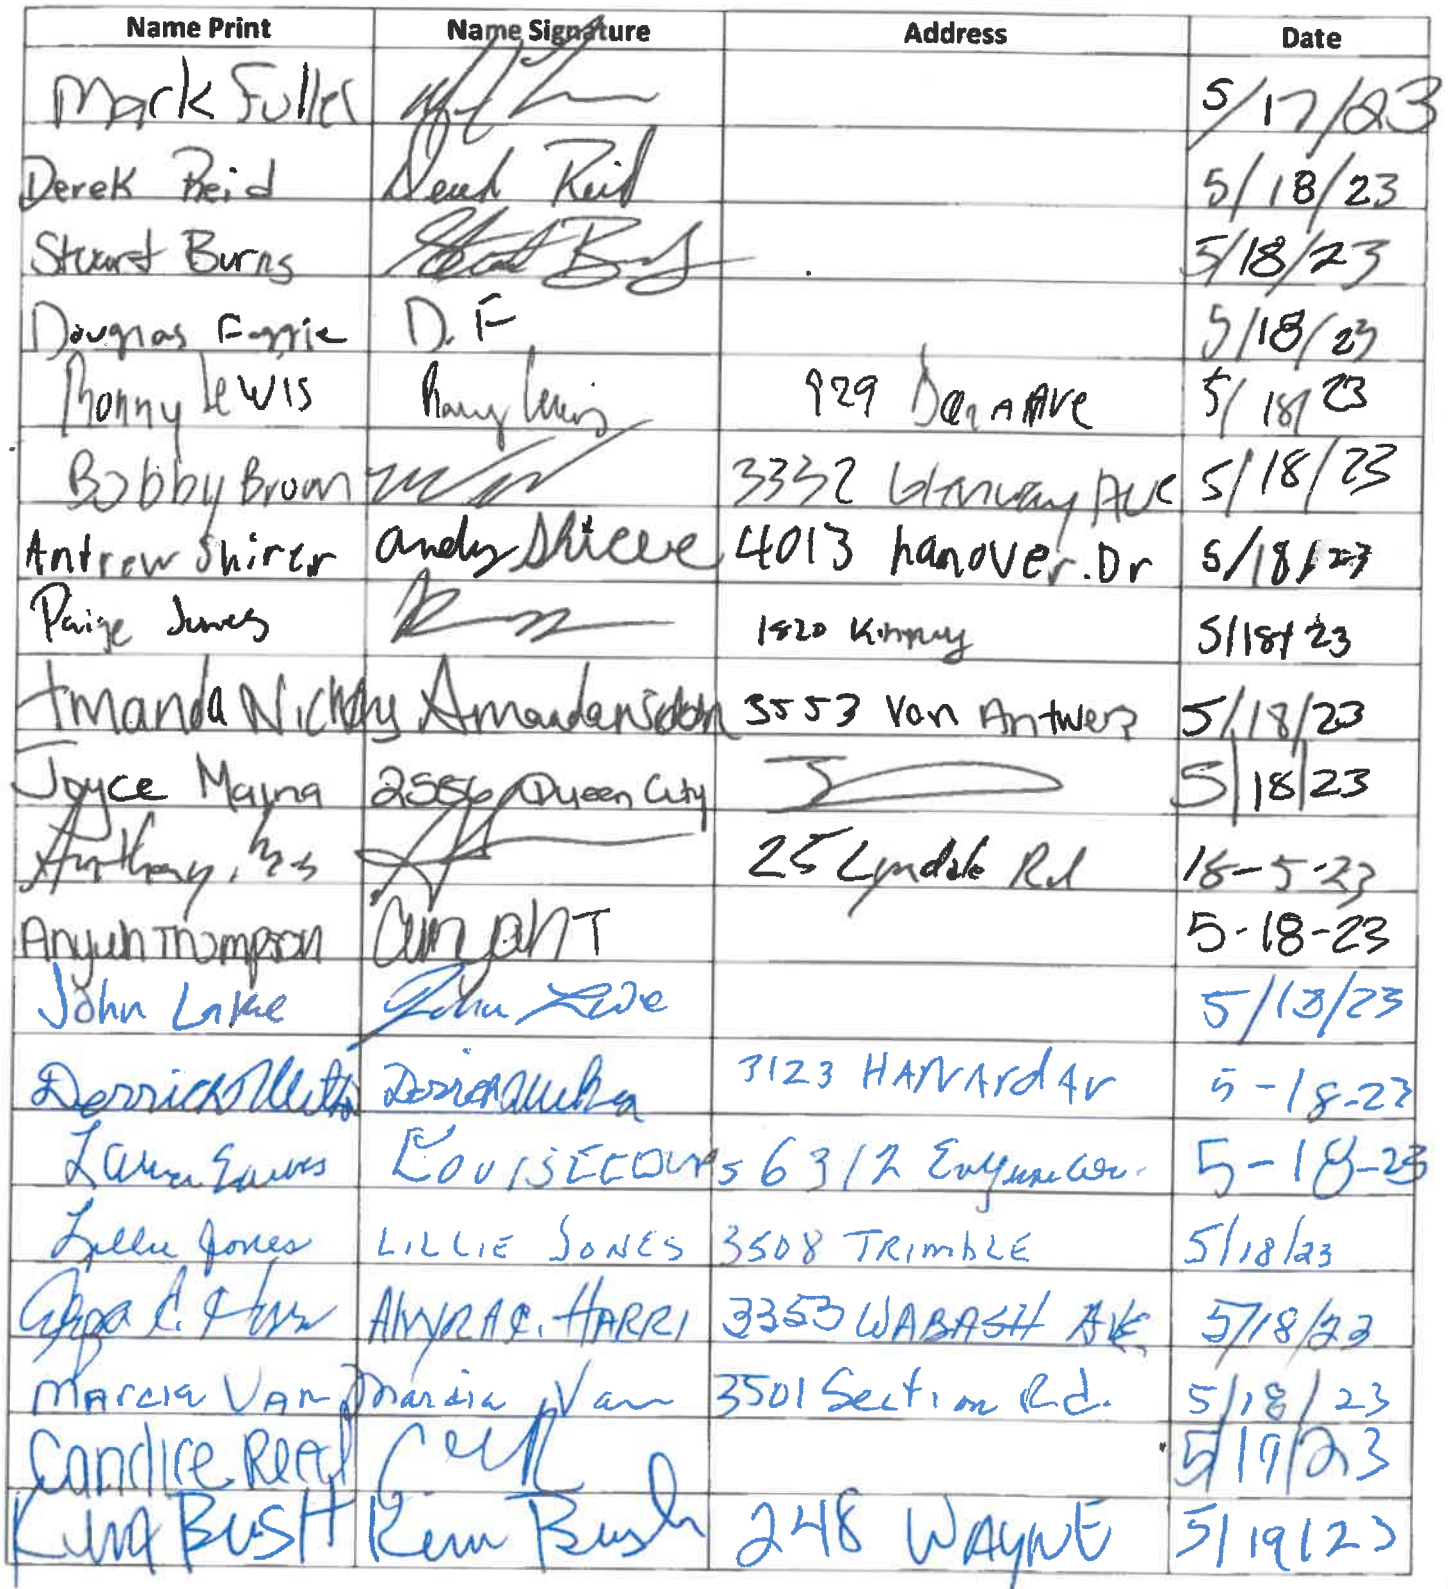 Name Print Name Signature Address Date
Mark Fuller 5/17/23
Derek Reid Derek Reid 5/18/23
Stuart Burns Stuart B 5/18/23
Douglas D. F 5/18/23
Ronny Lewis Rony Lewis 929 Ave 5/18/23
Bobby Brown 3332 Glenway AVE 5/18/23
Antrew Shirer andy 4013 hanover.Dr 5/18/23
Paige Jones 1820 5/18/23
Amanda 3553 Van Antwerp 5/18/23
Joyce Mayna 2556 Queen City 5/18/23
Anthony 25 Lyndale Rd 18-5-23
Anyuh Thompson T 5-18-23
John Lake John 5/18/23
Derrick 3123 HARVArd Av 5-18-23
6312 5-18-23
Lillie Jones LILLIE JONES 3508 TRimbLE 5/18/23
C. HARRI 3353 WABASH AVE 5/18/23
MArcia VAn Marcia Van 3501 Section Rd. 5/18/23
Candice Reed 5/19/23
Kim BUSH Kim Bush 248 WAYNE 5/19/23